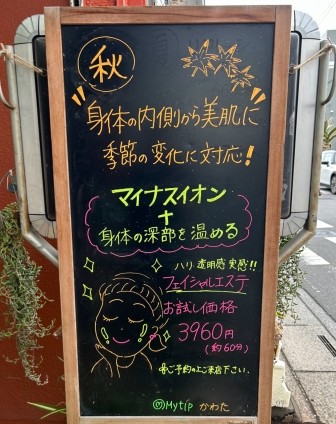 秋
身体の内側から美肌に
季節の変化に対応!
マイナスイオン
+
身体の深部を温める
ハリ・透明感 実感!!
フェイシャルエステ
お試し価格
3960円
(約60分)
※ご予約の上ご来店下さい.
Mytip かわた